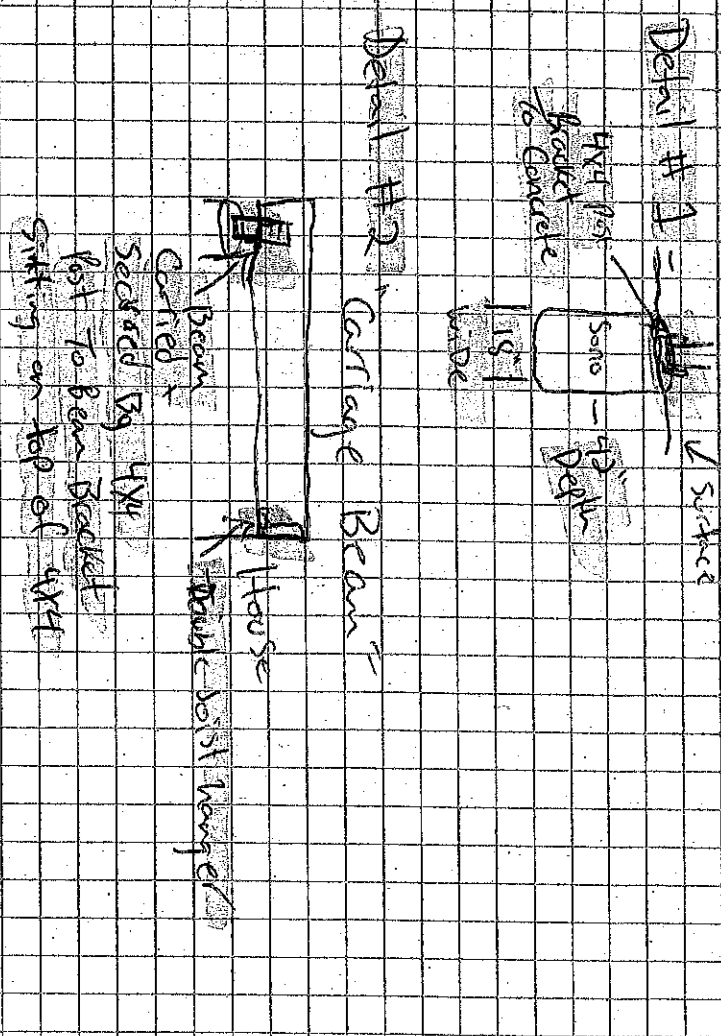 Detail #1 -
Surface
4x4 Post
Bracket
to Concrete
Sono - 42"
Depth
18"
wide
Detail #2 "Carriage Beam"
House
Double Joist hanger
Beam
Carried +
Secured By 4x4
Post To Beam Bracket
Sitting on top of 4x4